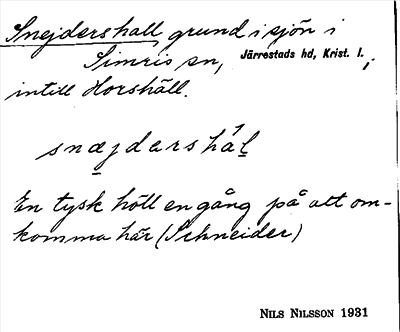 Snejdershall grund i sjön i
Simris sn, Järrestads hd, Krist. l.,
intill Horshäll.
snæjdarshál
En tysk höll en gång på att om-
komma här (Schneider)
NILS NILSSON 1931